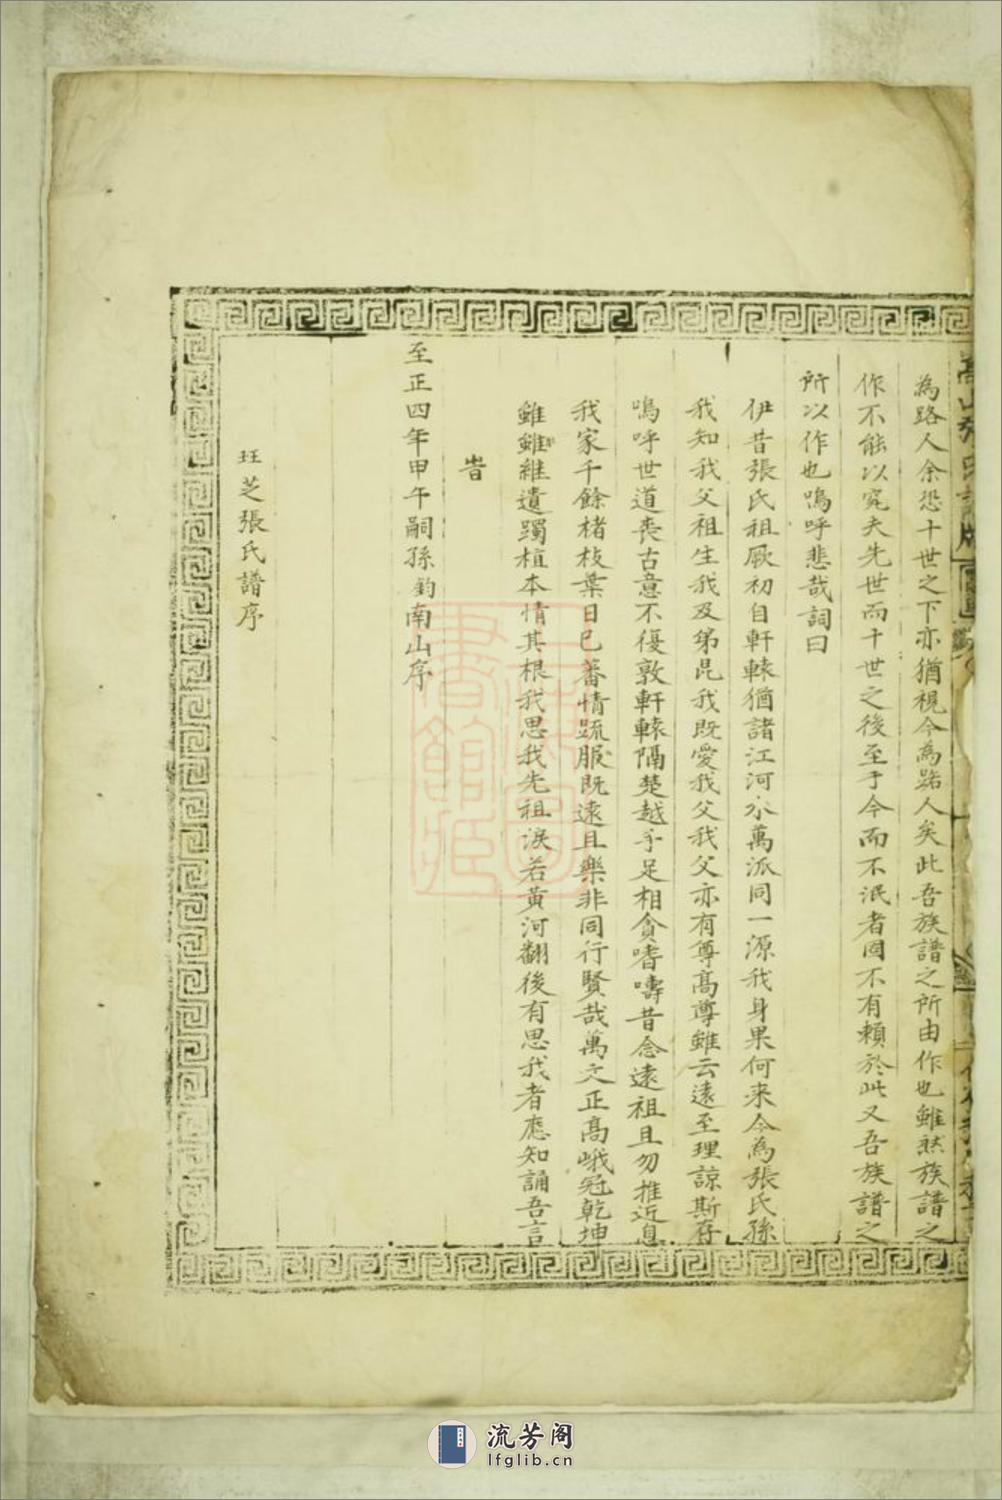 為路人余恐十世之下亦猶視今為路人矣此吾族譜之所由作也雖然族譜之
作不能以究夫先世而十世之後至于今而不泯者固不有賴於此又吾族譜之
所以作也嗚呼悲哉詞曰
伊昔張氏祖厥初自軒轅猶諸江河水萬派同一源我身果何来今為張氏孫
我知我父祖生我及弟昆我既愛我父我父亦有尊高尊雖云遠至理諒斯存
嗚呼世道喪古意不復敦軒轅隔楚越手足相貪嗜嚋昔念遠祖且勿推近息
我家千餘楮枝葉日已蕃情疏服既遠且樂非同行賢哉萬文正高峨冠乾坤
雖雖維遺躅植本情其根我思我先祖淚若黃河翻後有思我者應知誦吾言
旹
至正四年甲午嗣孫鈞南山序
玨芝張氏譜序
流芳阁
lfglib.cn